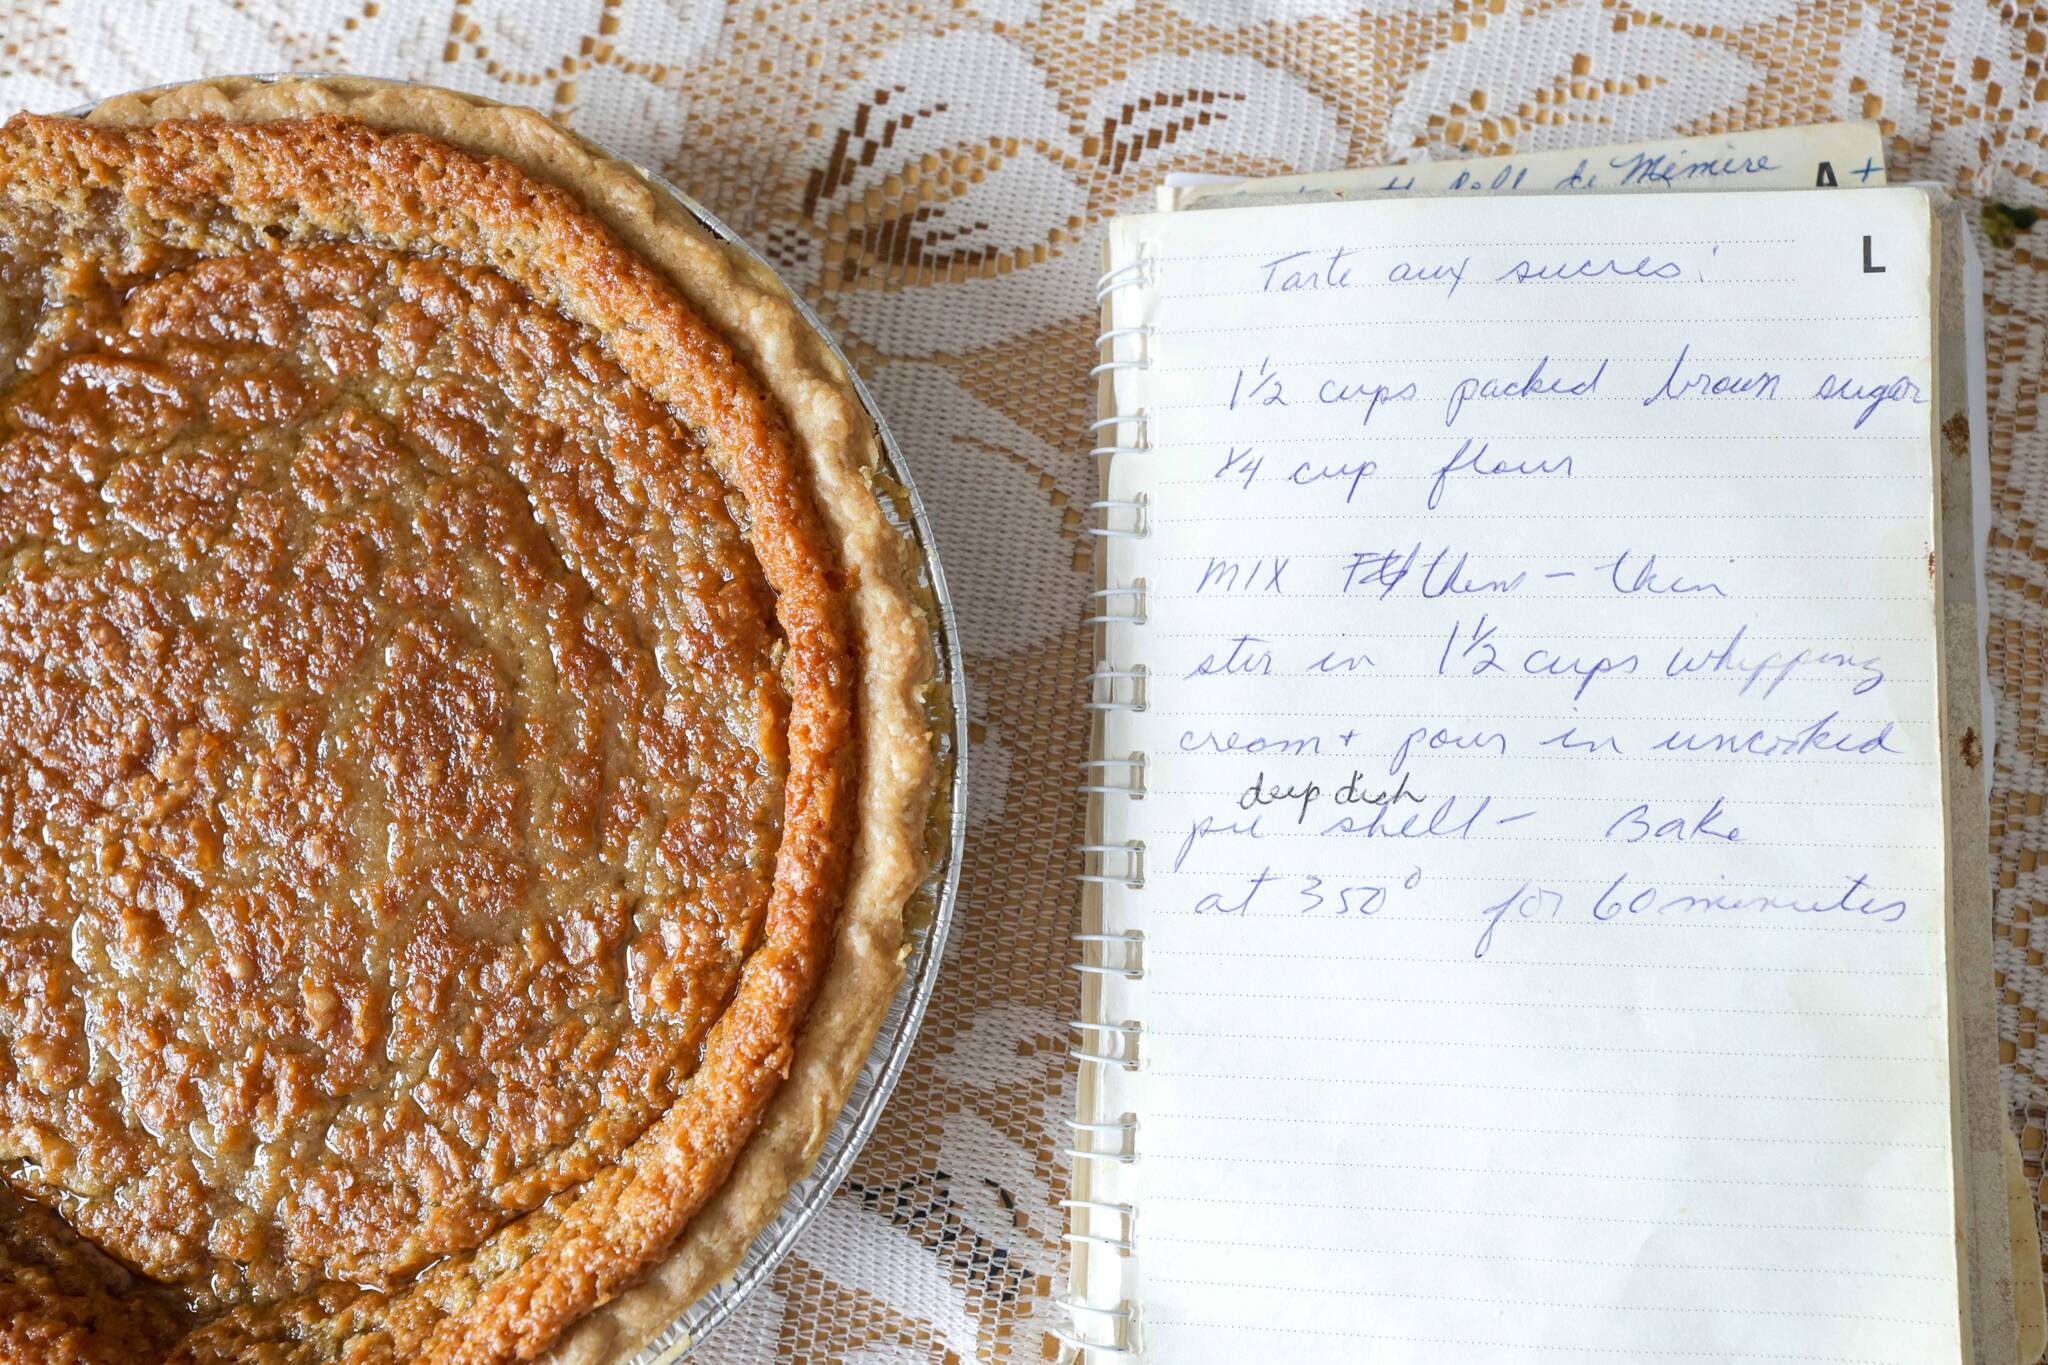 de Mémère
A+
L
Tarte aux sucres:
1 1/2 cups packed brown sugar
1/4 cup flour
MIX them - then
stir in 1 1/2 cups whipping
cream + pour in uncooked
deep dish
pie shell - Bake
at 350° for 60 minutes